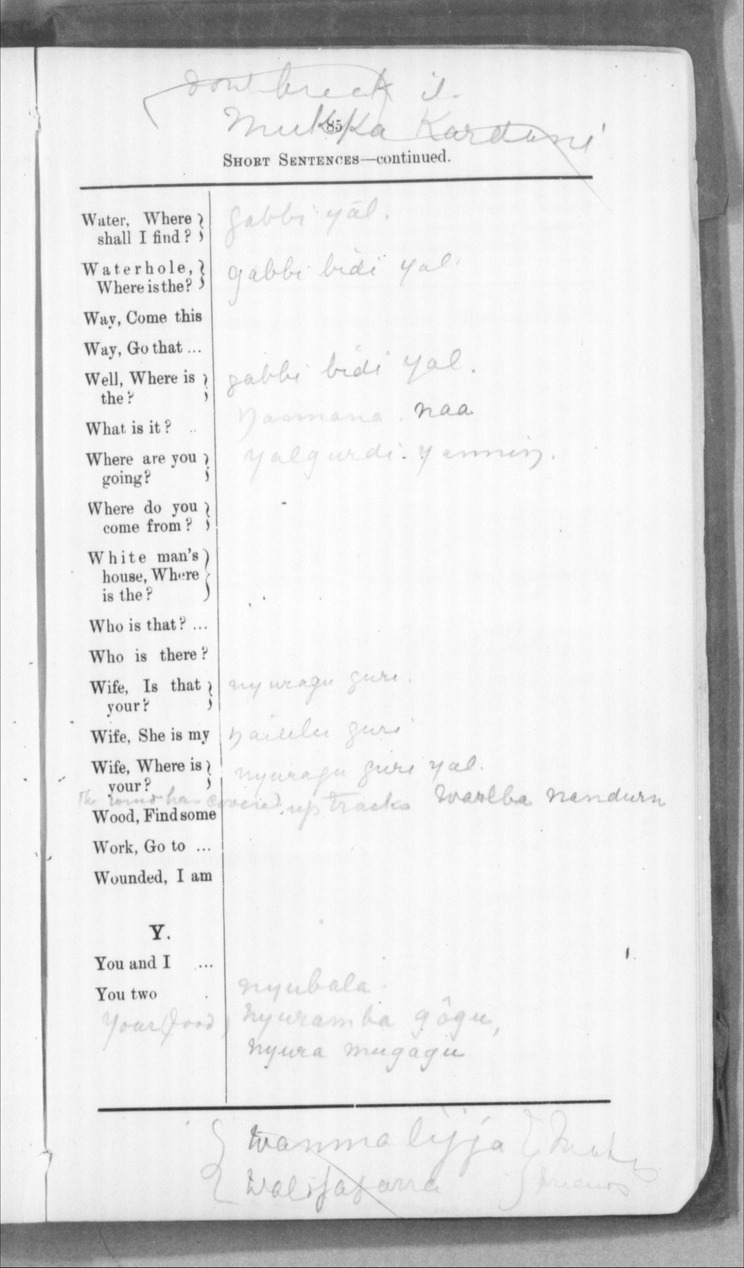 Dont break it.
Mukka Kardani
85
SHORT SENTENCES—continued.
Water, Where shall I find? gabbi yāl.
Waterhole, Where is the? gabbi bidi yāl.
Way, Come this
Way, Go that ...
Well, Where is the? gabbi bidi yāl.
What is it? .. naa
Where are you going? yalgurdi. yannin.
Where do you come from? -
White man's house, Where is the?
Who is that? ...
Who is there?
Wife, Is that your? nyuragu guri.
Wife, She is my guri
Wife, Where is your? nyuragu guri yal.
The wind has covered up tracks Warlba nandurn
Wood, Find some
Work, Go to ...
Wounded, I am
Y.
You and I ...
You two nyubala
Your food nyuramba gôgu,
nyura mugagu
wanma